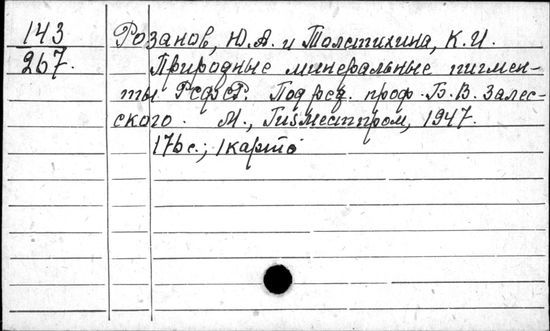 143
267.
Розанов, Ю.А. и Толстихина, К.И.
Природные минеральные пигмен-
ты РСФСР. Под ред. проф. Б.В. Залес-
ского. М., Гизместпром, 1947.
176 с.; 1 карта